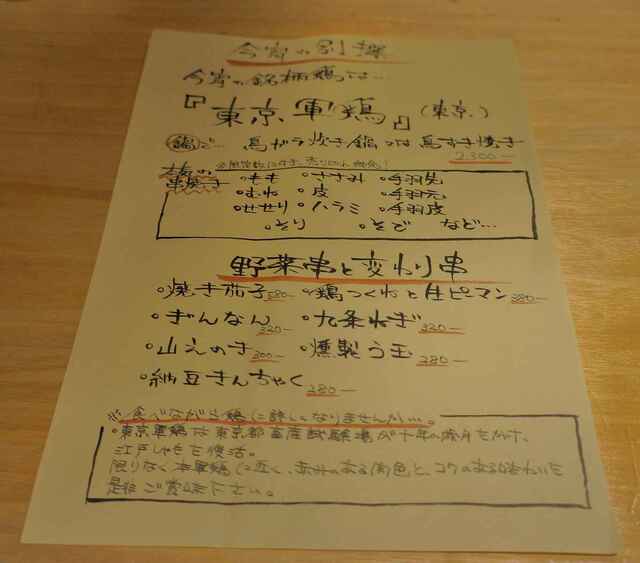 今宵の別撰
今宵の銘柄鶏は…
『東京軍鶏』(東京)
鍋で 鳥ガラ炊き鍋 又は 鳥すき焼き
2,300
※限定数に付き、売り切れ御免!
本日の
串焼き
・もも ・ささみ ・手羽先
・むね ・皮 ・手羽元
・せせり ・ハラミ ・手羽皮
・そり ・そで など…
野菜串と変わり串
・焼き茄子 280 ・鶏つくねと生ピーマン 380
・ぎんなん 320 ・九条ねぎ 320
・山えのき 300 ・燻製う玉 280
・納豆きんちゃく 280
※食べながら鶏に詳しくなりませんか…。
・東京軍鶏は東京都畜産試験場が十年の歳月をかけ、
江戸しゃもを復活。
限りなく本軍鶏に近く、赤みのある肉色と、コクのある味わいを
是非ご賞味下さい。